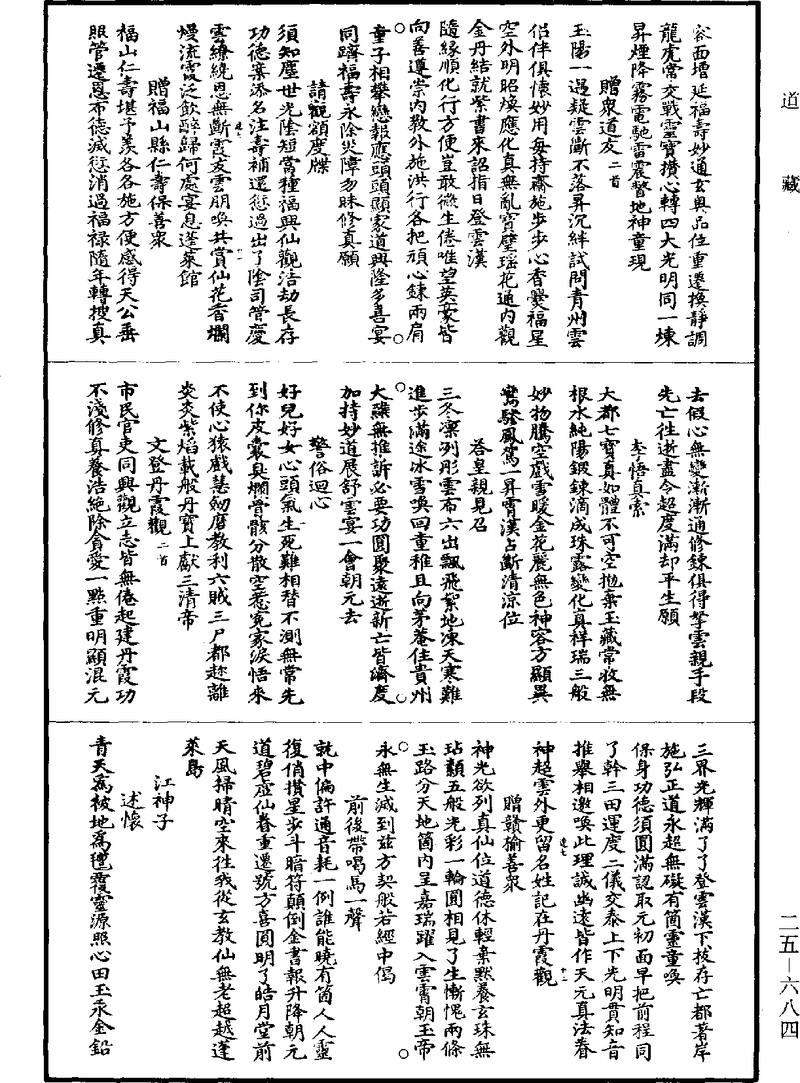 道藏
容面增延福壽妙通玄奧品位重遷換靜調
龍虎常交戰靈寶攢心轉四大光明同一埬
昇煙降霧電馳雷震警地神童現
贈衆道友二首
玉陽一過疑雲斷不落昇沉絆試問青州雲
侶伴俱懷妙用每持齋施步步心香爇福星
空外明昭煥應化真無亂寶璧瑶花通內觀
金丹結就紫書來詔指日登雲漢
隨緣順化行方便豈敢微生倦唯望英豪皆
向善遵崇內教外施洪行各把頑心鍊兩肩
童子相攀戀報應頭頭顯家道興隆多喜宴
同躋福壽永除災障勿昧修真願
請觀額度牒
須知塵世光陰短當種福興仙觀浩劫長存
功德業添名注壽補還愆過出了陰司管慶
雲繚繞恩無斷雲友雲朋喚共賞仙花香爛
熳流霞泛飲醉歸何處宴息蓬萊館
贈福山縣仁壽保善衆
福山仁壽堪予羡各各施方便感得天公垂
照管遷恩布德減愆消過福禄隨年轉搜真
去假心無變漸漸通修鍊俱得拏雲親手段
先亡徃逝盡令超度滿却平生願
李悟真索
大都七寶真如體不可空抛棄玉藏常收無
根水純陽鍛鍊滴成珠露變化真祥瑞三般
妙物騰空戲雪暖金花麗無色神容方顯異
鸞驂鳳駕一昇霄漢占斷清涼位
荅皇親見召
三冬凜列彤雲布六出飄飛絮地凍天寒難
進步滿途冰雪喚回重稚且向茅菴住貴州
大醮無推訴必要功圓聚遠逝新亡皆濟度
加持妙道展舒雲宴一會朝元去
警俗迴心
好兒好女心頭氣生死難相替不測無常先
到你皮囊臭爛骨骸分散空惹冤家淚悟來
不使心猿戲慧劒磨教利六賊三尸都趂離
炎炎紫焰載般丹寶上獻三清帝
文登丹霞觀二首
市民官吏同興觀立志皆無倦起建丹霞功
不淺修真養浩絶除貪愛一點重明顯浪元
三界光輝滿了了登雲漢下拔存亡都著岸
施弘正道永超無礙有箇靈童喚
保身功德須圓滿認取元初面早把前程同
了幹三田運度二儀交泰上下光明貫知音
推舉相邀喚此理誠幽遠皆作天元真法眷
神超雲外更留名姓記在丹霞觀
贈贛榆善衆
神光欲列真仙位道德休輕棄黙養玄珠無
玷纇五般光彩一輪圓相見了生慚愧兩條
玉路分天地箇內呈嘉瑞躍入雲霄朝玉帝
永無生滅到兹方契般若經中偈
前後帶喝馬一聲
就中偏許通音耗一例誰能曉有箇人人靈
復俏攢星步斗暗符顛倒金書報升降朝元
道碧虛仙眷重遷號方喜圓明了皓月堂前
天風掃晴空來徃我從玄教仙無老超越蓬
萊島
江神子
述懷
青天爲被地爲氊覆靈源照心田玉汞金鉛
二五—六八四